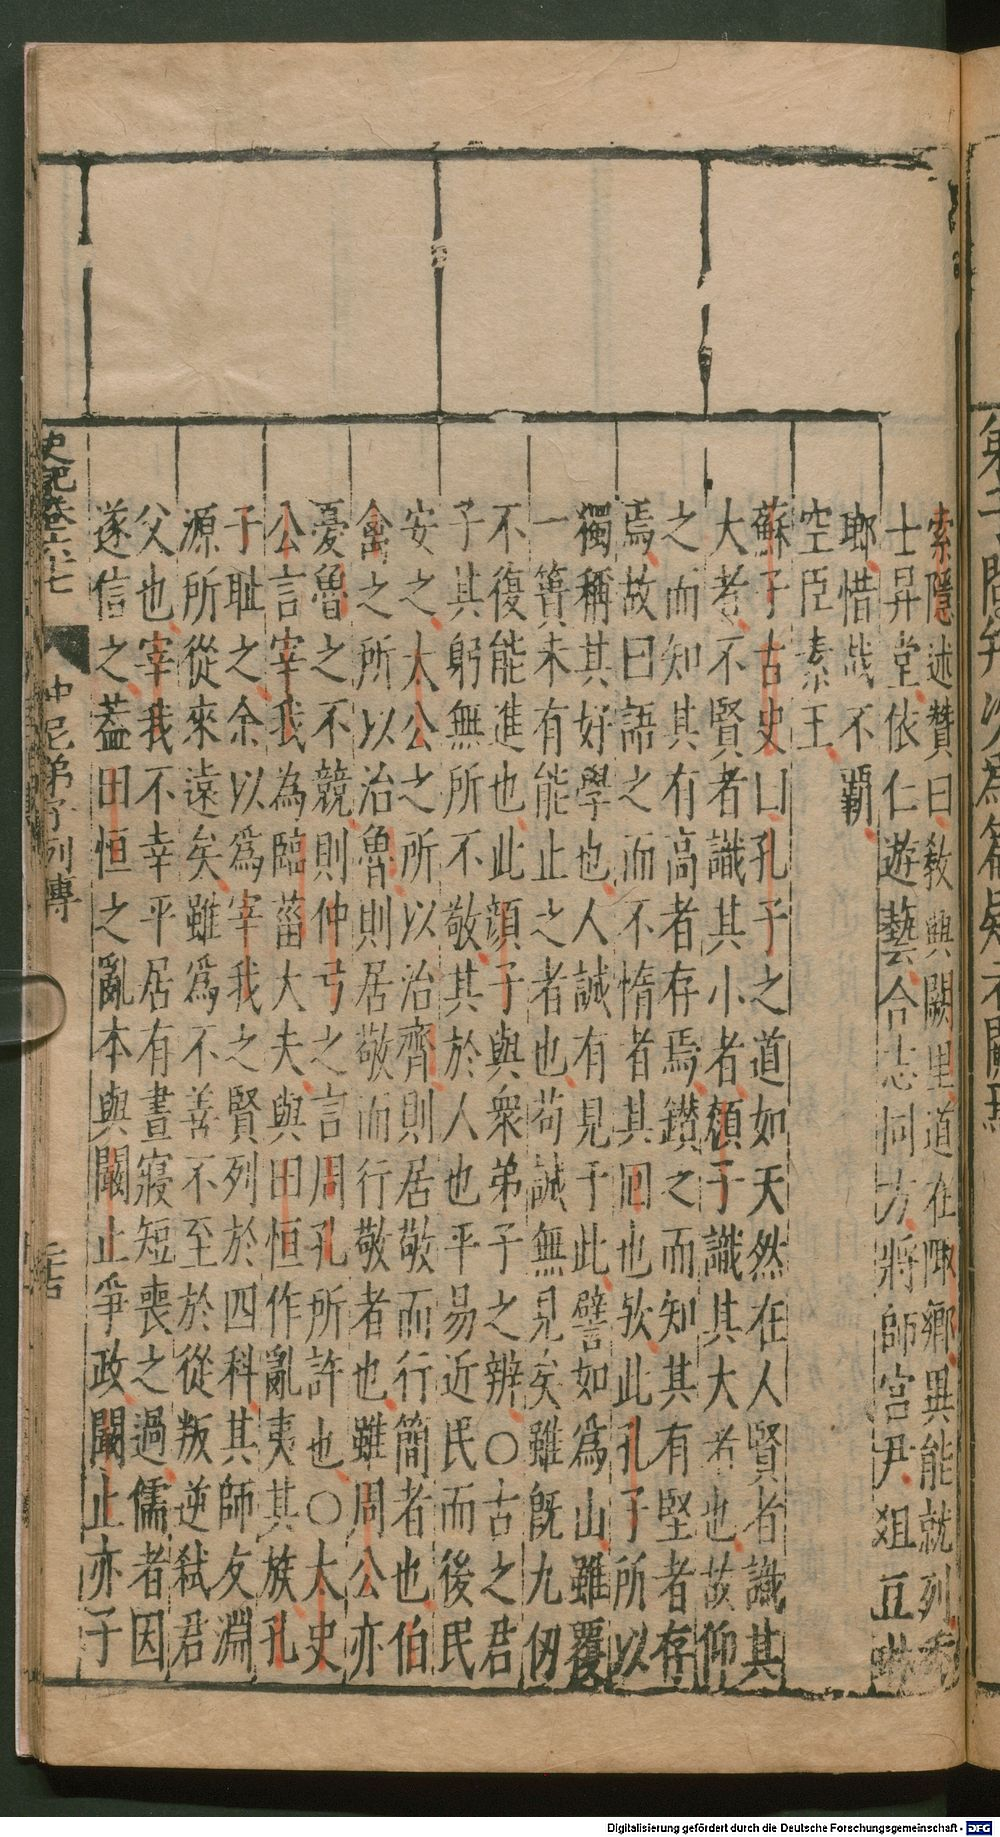 索隱述贊曰教興闕里道在陬鄉異能就列秀
士昇堂依仁遊藝合志同方將師宮尹俎豆
瑯惜哉不霸
空臣素王
蘇子古史曰孔子之道如天然在人賢者識其
大者不賢者識其小者顏子識其大者也故仰
之而知其有高者存焉鑽之而知其有堅者存
焉故曰語之而不惰者其回也欤此孔子所以
獨稱其好學也人誠有見于此譬如為山雖覆
一簣未有能止之者也苟誠無見矣雖既九仞
不復能進也此顏子與衆弟子之辨○古之君
子其躬無所不敬其於人也平易近民而後民
安之太公之所以治齊則居敬而行簡者也伯
禽之所以治魯則居敬而行敬者也雖周公亦
憂魯之不競則仲弓之言周孔所許也○太史
公言宰我為臨菑大夫與田恒作亂夷其族孔
子恥之余以爲宰我之賢列於四科其師友淵
源所從來遠矣雖爲不善不至於從叛逆弒君
父也宰我不幸平居有晝寢短喪之過儒者因
遂信之蓋田恒之亂本與闞止爭政闞止亦子
史記卷六十七 仲尼弟子列傳
Digitalisierung gefördert durch die Deutsche Forschungsgemeinschaft - DFG